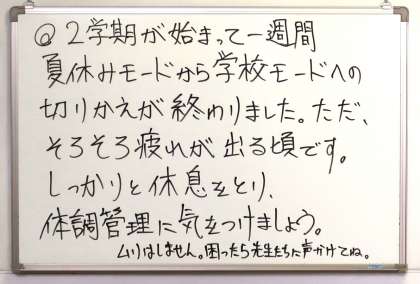 @ 2学期が始まって一週間
夏休みモードから学校モードへの
切りかえが終わりました。ただ、
そろそろ疲れが出る頃です。
しっかりと休息をとり、
体調管理に気をつけましょう。
ムリはしません。困ったら先生たちに声かけてね。